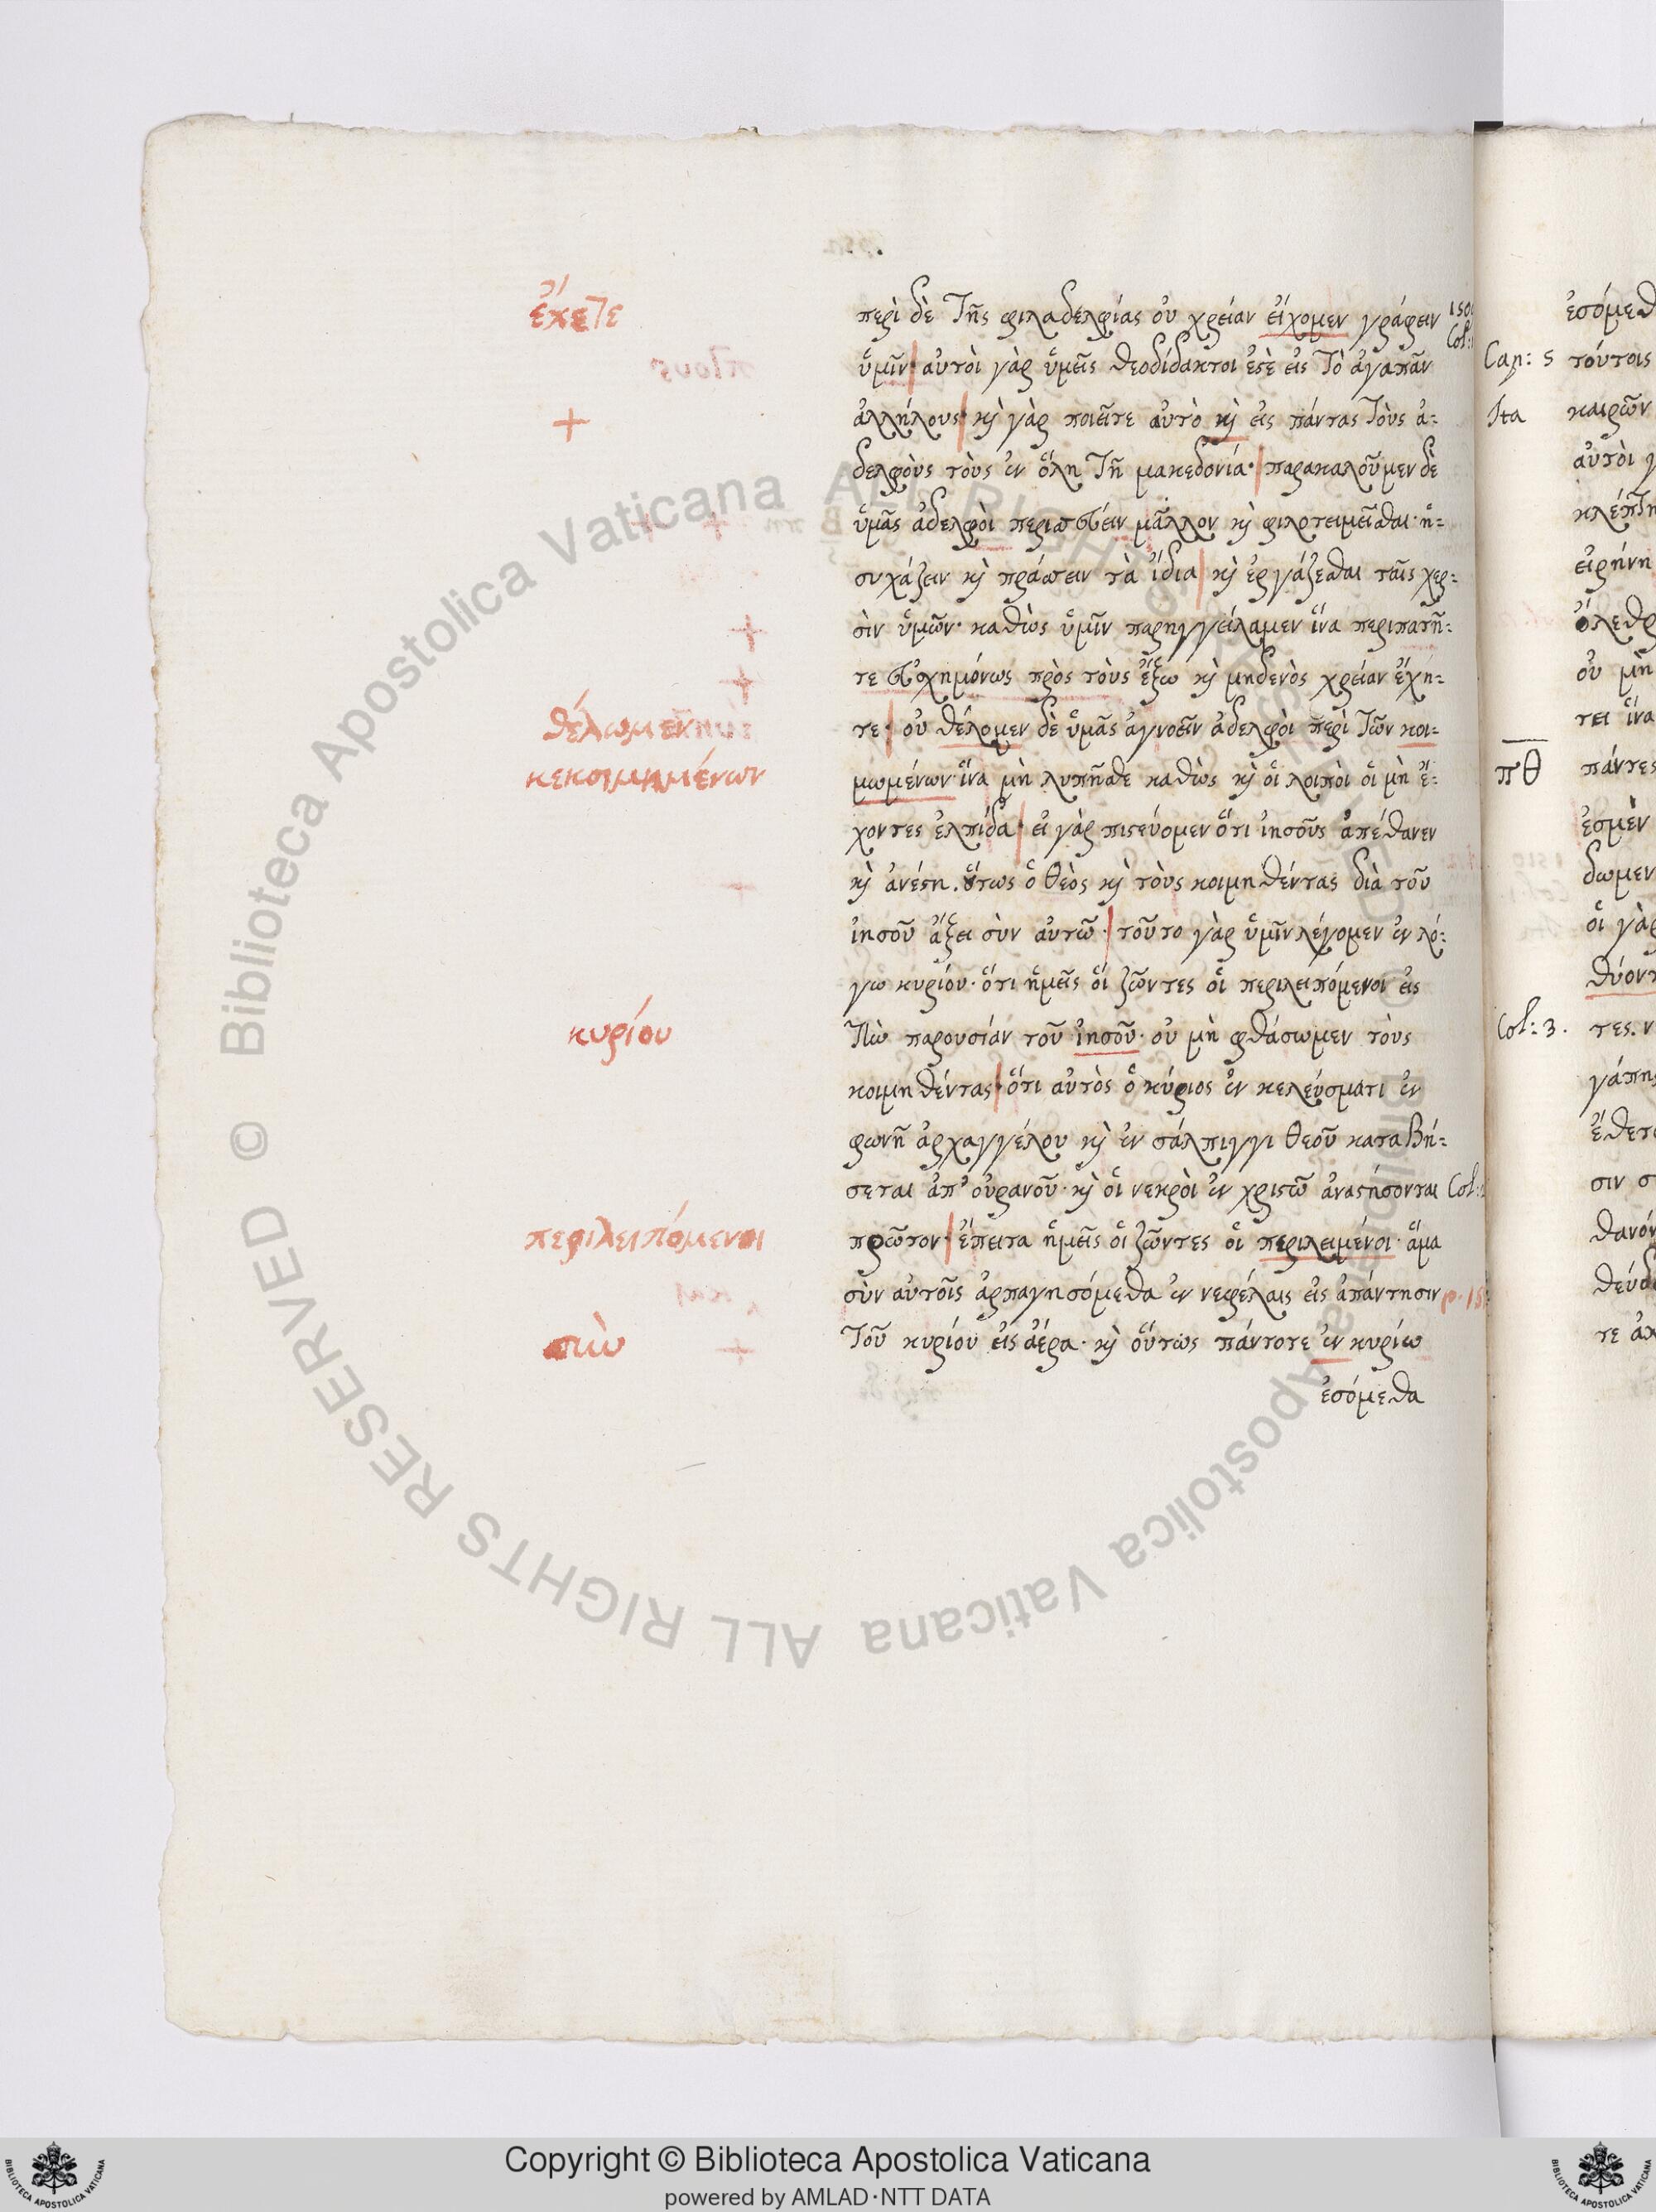 ἔχετε
+
+
+
θέλωμεν
κεκοιμημένων
κυρίου
περιλειπόμενοι
σὺν
+
περὶ δὲ τῆς φιλαδελφίας οὐ χρείαν εἴχομεν γράφειν
ὑμῖν· αὐτοὶ γὰρ ὑμεῖς θεοδίδακτοί ἐστὲ εἰς τὸ ἀγαπᾶν
ἀλλήλους· κὶ γὰρ ποιεῖτε αὐτὸ κὶ εἰς πάντας τοὺς ἀ-
δελφοὺς τοὺς ἐν ὅλη τῆ μακεδονία· παρακαλοῦμεν δὲ
ὑμᾶς ἀδελφοὶ περισσεύειν μᾶλλον κὶ φιλοτειμεῖσθαι· ἡ-
συχάζειν κὶ πράσσειν τὰ ἴδια κὶ ἐργάζεσθαι ταῖς χερ-
σὶν ὑμῶν· καθὼς ὑμῖν παρηγγείλαμεν ἵνα περιπατῆ-
τε εὐσχημόνως πρὸς τοὺς ἔξω κὶ μηδενὸς χρείαν ἔχη-
τε· οὐ θέλομεν δὲ ὑμᾶς ἀγνοεῖν ἀδελφοὶ περὶ τῶν κοι-
μωμένων· ἵνα μὴ λυπῆσθε καθὼς κὶ οἱ λοιποὶ οἱ μὴ ἔ-
χοντες ἐλπίδα· εἰ γὰρ πιστεύομεν ὅτι ἰησοῦς ἀπέθανεν
κὶ ἀνέστη. οὕτως ὁ θεὸς κὶ τοὺς κοιμηθέντας διὰ τοῦ
ἰησοῦ ἄξει σὺν αὐτῶ· τοῦτο γὰρ ὑμῖν λέγομεν ἐν λό-
γω κυρίου· ὅτι ἡμεῖς οἱ ζῶντες οἱ περιλειπόμενοι εἰς
τὴν παρουσίαν τοῦ ἰησοῦ· οὐ μὴ φθάσωμεν τοὺς
κοιμηθέντας· ὅτι αὐτὸς ὁ κύριος ἐν κελεύσματι ἐν
φωνῆ ἀρχαγγέλου κὶ ἐν σάλπιγγι θεοῦ καταβή-
σεται ἀπ' οὐρανοῦ· κὶ οἱ νεκροὶ ἐν χριστῶ ἀναστήσονται
πρῶτον· ἔπειτα ἡμεῖς οἱ ζῶντες οἱ περιλειμένοι· ἅμα
σὺν αὐτοῖς ἁρπαγησόμεθα ἐν νεφέλαις εἰς ἀπάντησιν
τοῦ κυρίου εἰς ἀέρα· κὶ οὕτως πάντοτε ἐν κυρίω
ἐσόμεθα
Cap: 5
Ita
πθ
Col: 3.
τούτοις
καιρῶν
αὐτοὶ
εἰρήνη
οὐ μὴ
πάντες
ἐσμὲν
οἱ γὰρ
© Biblioteca Apostolica Vaticana ALL RIGHTS RESERVED
© Biblioteca Apostolica Vaticana ALL RIGHTS RESERVED
Copyright © Biblioteca Apostolica Vaticana
powered by AMLAD·NTT DATA
BIBLIOTECA APOSTOLICA VATICANA
BIBLIOTECA APOSTOLICA VATICANA